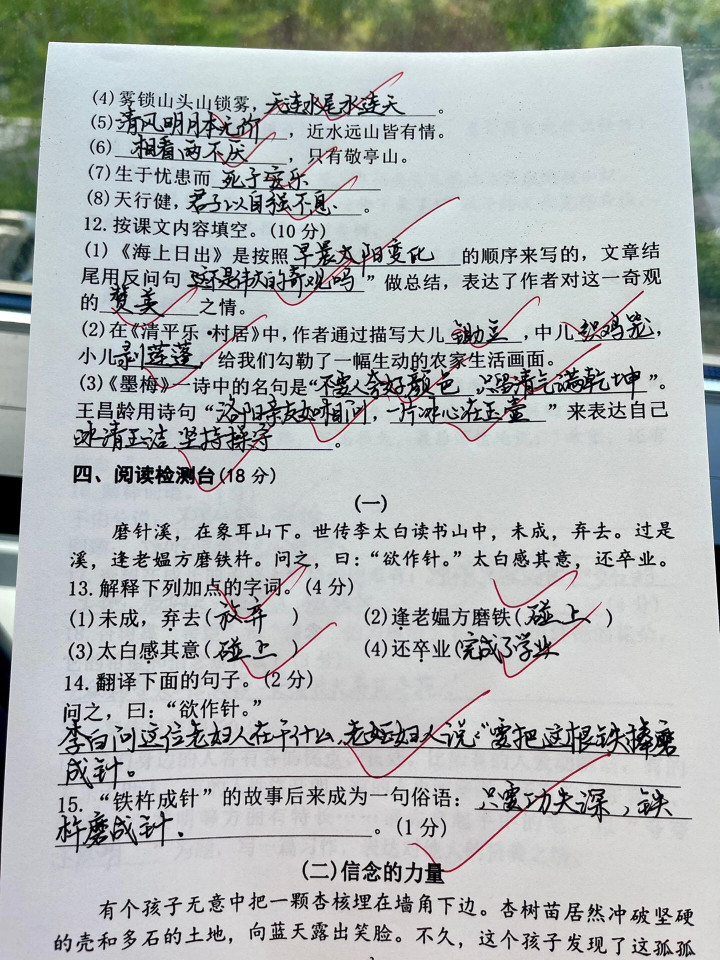 (4)雾锁山头山锁雾，天连水尾水连天。
(5)清风明月本无价，近水远山皆有情。
(6)相看两不厌，只有敬亭山。
(7)生于忧患而死于安乐
(8)天行健，君子以自强不息。
12.按课文内容填空。(10分)
(1)《海上日出》是按照早晨太阳变化的顺序来写的，文章结
尾用反问句这不是伟大的奇观吗”做总结，表达了作者对这一奇观
的赞美之情。
(2)在《清平乐·村居》中，作者通过描写大儿锄豆，中儿织鸡笼，
小儿剥莲蓬，给我们勾勒了一幅生动的农家生活画面。
(3)《墨梅》一诗中的名句是“不要人夸好颜色，只留清气满乾坤”。
王昌龄用诗句“洛阳亲友如相问，一片冰心在玉壶”来表达自己
冰清玉洁 坚持操守。
四、阅读检测台(18分)
(一)
磨针溪，在象耳山下。世传李太白读书山中，未成，弃去。过是
溪，逢老媪方磨铁杵。问之，曰：“欲作针。”太白感其意，还卒业。
13.解释下列加点的字词。(4分)
(1)未成，弃去(放弃) (2)逢老媪方磨铁(碰上)
(3)太白感其意(碰上) (4)还卒业(完成了学业
14.翻译下面的句子。(2分)
问之，曰：“欲作针。”
李白问这位老妇人在干什么，老妇人说：“要把这根铁棒磨
成针。
15.“铁杵成针”的故事后来成为一句俗语：只要功夫深，铁
杵磨成针。。(1分)
(二)信念的力量
有个孩子无意中把一颗杏核埋在墙角下边。杏树苗居然冲破坚硬
的壳和多石的土地，向蓝天露出笑脸。不久，这个孩子发现了这孤孤